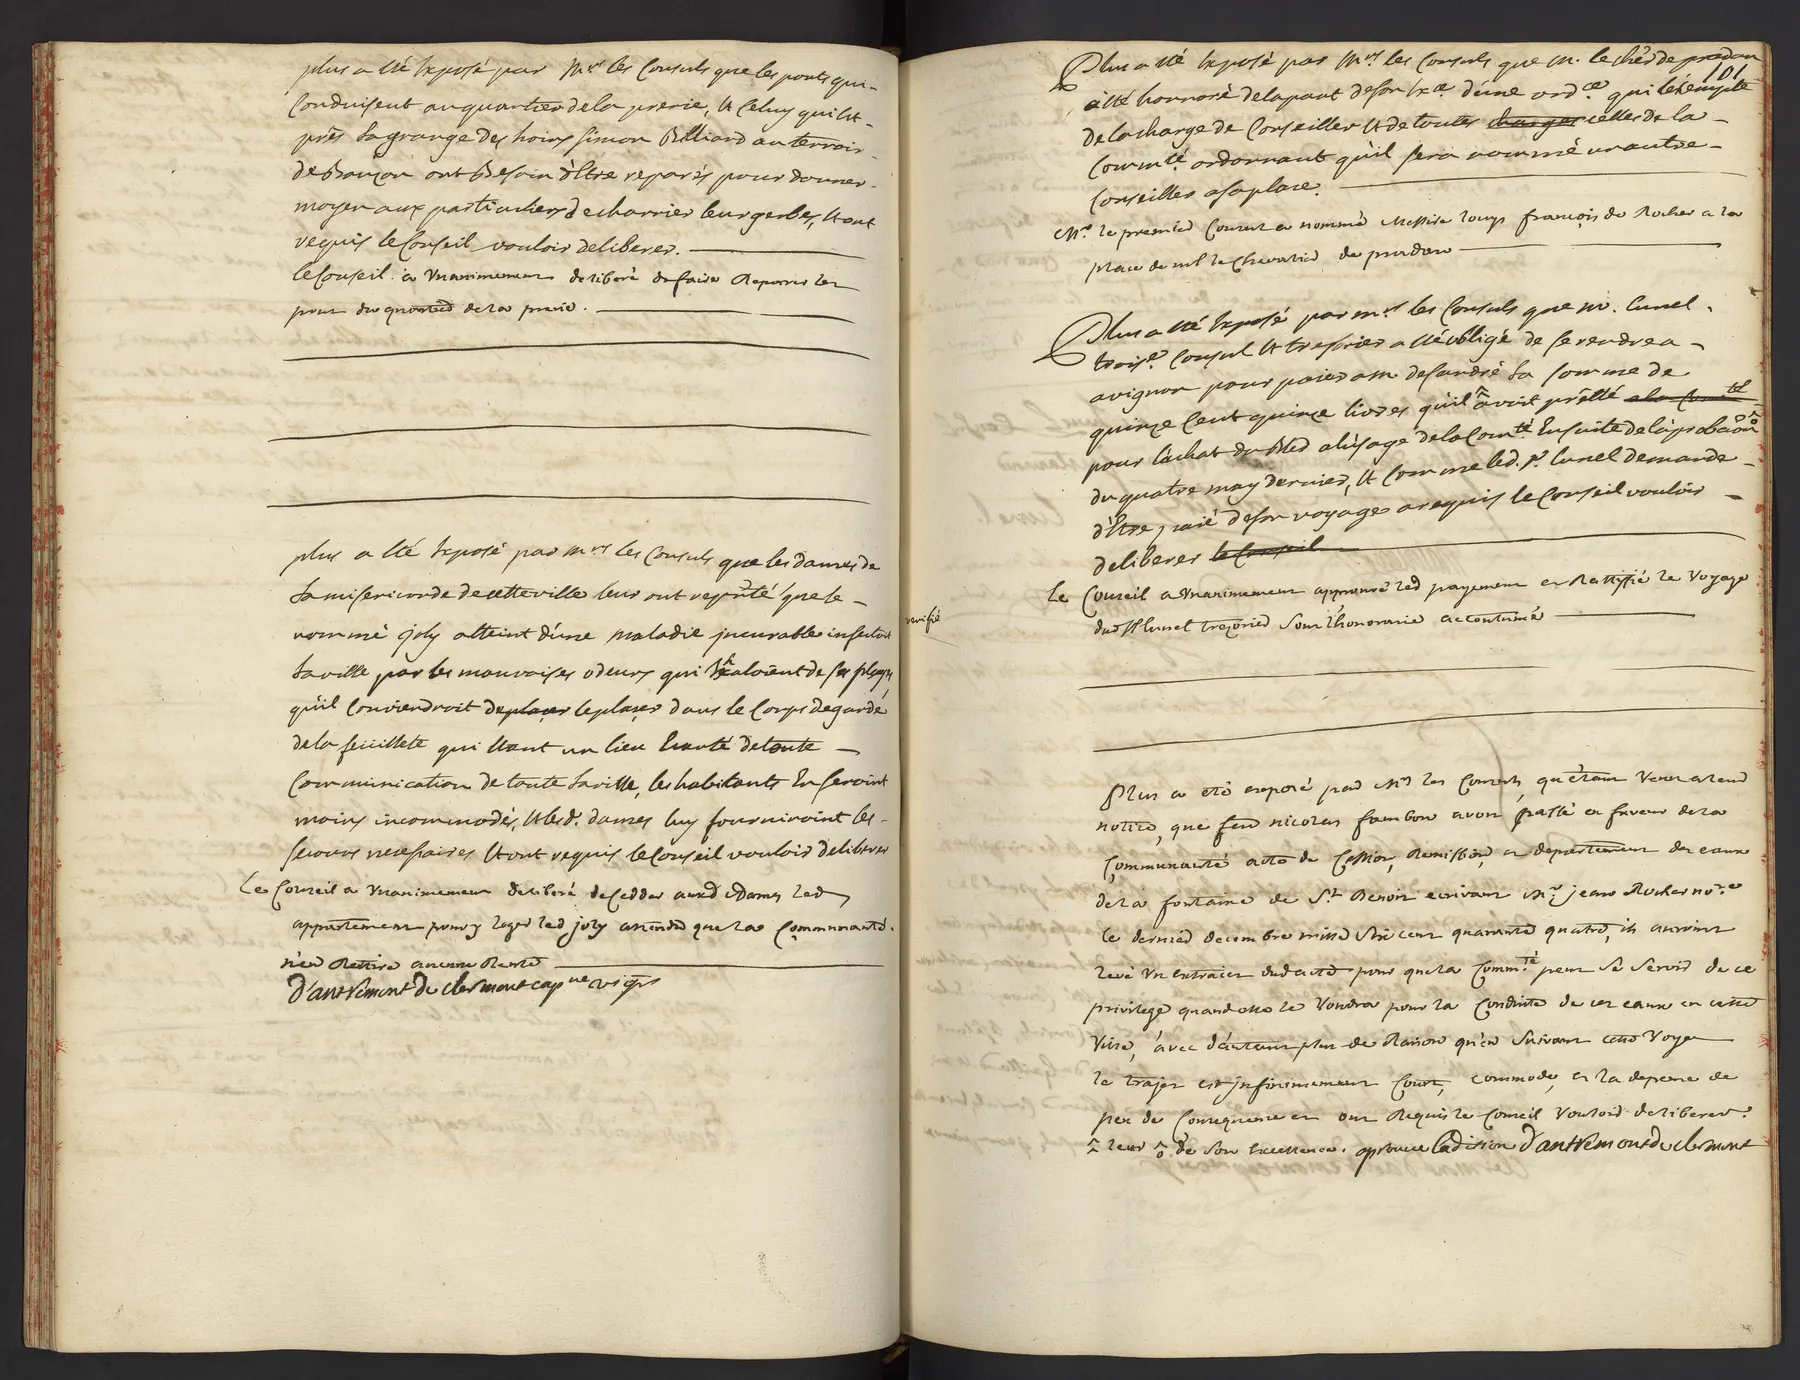 plus a eté Exposé par Mrs les Consuls que les ponts qui-
Conduisent au quartier de la prerie, et Celuy qui Est-
près la grange des hoirs Simon Billiard au terroir-
de ont Besoin d'Etre reparés pour donner-
moyen aux particuliers de charrier leurs gerbes, et ont
requis le Conseil vouloir deliberer.
le Conseil a Unanimement deliberé de faire Reparer les
pons du quartier de la prerie.
plus a eté Exposé par mrs les Consuls que les dames de
la misericorde de cette ville leur ont reputé que le-
nommé joly atteint d'une maladie jncurable infectoit
la ville par les mauvaises odeurs qui Exaloient de ses playes
qu'il Conviendroit de placer le placer dans le Corps de garde
de la feüillete qui Etant un lieu Ecarté de toute-
Communication de toute la ville, les habitants En seroint
moins incommodés, et lesd. dames luy fourniroint les-
secours necessaires et ont requis le Conseil vouloir deliberer
Le Conseil a Unanimement deliberé de Cedder auxd Dames led
appartement pour y loger led joly attendu que la Communauté
n'en Rettire aucune Rente
d'antremont de clermont cap ne viguier
verifié
101
Plus a eté Exposé par Mrs les Consuls que M. le cher de pradon
a eté honnoré de la part de son Exce. d'une ordce. qui l'éxempte
de la charge de Conseiller et de toutes charges celles de la-
Commté. ordonnant qu'il sera nommé un autre-
Conseiller a sa place.
Mr. le premier Consul a nommé Messire louys françois de Rocher a la
place de mr le Chevalier de pradon
Plus a eté Exposé par mrs les Consuls que m. Lunel.
troise. Consul et tresorier a eté obligé de se rendre a-
avignon pour paier a M. de sandré la somme de
quinze Cent quinze livres qu'il avoit prêtté a la Commté
pour l'achat du Bled a l'usage de la Comté Ensuite de l'aprobaon
du quatre may dernier, et Comme led. sr. Lunel demande-
d'Etre paié de son voyage a requis le Conseil vouloir-
deliberer le Conseil
Le Conseil a Unanimement approuvé led payement et Rattiffié le Voyage
dud sr lunel trezorier sous l'honoraire accoutumé
Plus a eté exposé par Mrs les Consuls, qu'étant venu a leur
notice, que feu nicolas frambon avoit passé en faveur de la
Communauté acte de Cession, Remission, et departement des eaux
de la fontaine de St. Benoit ecrivant Mr. jean Rocher nore.
le dernier decembre mille six cent quarante quatre, ils auroint
levé un extraict dud acte pour que la Commté. peut se servir de ce
privilege quand elle le voudra pour la Conduite de ces eaux en cette
Ville, avec d'autant plus de Raison qu'en suivant cette Voye
le trajet est jnfiniment Court, commode, et la depense de
peu de Consequence et ont Requis le Conseil vouloir deliberer.
^ leur ô de son Excellence. aprouve l'adition d'antremont de clermont